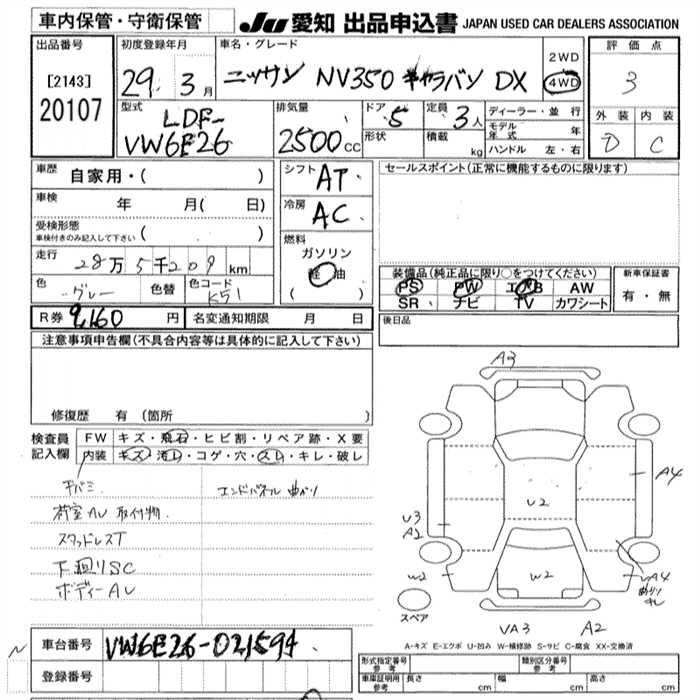 車内保管・守衛保管
JU 愛知 出品申込書 JAPAN USED CAR DEALERS ASSOCIATION
出品番号
[2143]
20107
初度登録年月
29年 3月
車名・グレード
ニッサン NV350 キャラバン DX
2WD
4WD
評価点
3
外装 内装
D C
型式
LDF-
VW6E26
排気量
2500cc
ドア 5
形状
定員 3人
積載 kg
ディーラー・並行
モデル年式 年
ハンドル 左・右
車歴 自家用・( )
車検 年 月( 日)
受検形態
車検付きのみ記入して下さい ( )
走行 28万5千209km
色 グレー 色替 色コード K51
シフト AT
冷房 AC
燃料
ガソリン
軽油
( )
セールスポイント(正常に機能するものに限ります)
装備品(純正品に限り○をつけてください)
PS PW エアB AW
SR ナビ TV カワシート
新車保証書
有・無
R券 9,160円 名変通知期限 月 日
後日品
注意事項申告欄(不具合内容等は具体的に記入して下さい)
修復歴 有 (箇所 )
検査員
記入欄
FW キズ・飛石・ヒビ割・リペア跡・X要
内装 キズ・汚レ・コゲ・穴・スレ・キレ・破レ
荷室AU 取付物
エンドパネル 曲がり
スタッドレスT
下廻りSC
ボディーAU
A3
A4
U2
U3
A2
W2
W2
A4
曲り
キレ
スペア
A2
A-キズ E-エクボ U-凹み W-補修跡 S-サビ C-腐食 XX-交換済
車台番号 VW6E26-021594
登録番号
N
形式指定番号
参考
類別区分番号
参考
車庫証明用
参考
長さ cm 幅 cm 高さ cm